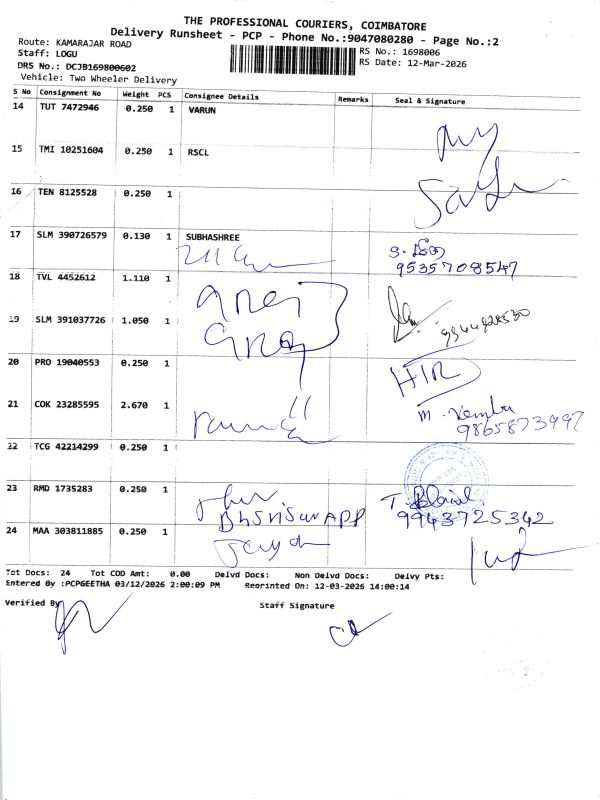 THE PROFESSIONAL COURIERS, COIMBATORE
Delivery Runsheet - PCP - Phone No.:9047080280 - Page No.:2
Route: KAMARAJAR ROAD
Staff: LOGU
DRS No.: DCJB169800602
Vehicle: Two Wheeler Delivery
RS No.: 1698006
RS Date: 12-Mar-2026
S No Consignment No Weight PCS Consignee Details Remarks Seal & Signature
14 TUT 7472946 0.250 1 VARUN
15 TMI 10251604 0.250 1 RSCL
16 TEN 8125528 0.250 1
17 SLM 390726579 0.130 1 SUBHASHREE
9535708547
18 TVL 4452612 1.110 1
19 SLM 391037726 1.050 1
20 PRO 19040553 0.250 1
21 COK 23285595 2.670 1
M.
22 TCG 42214299 0.250 1
23 RMD 1735283 0.250 1
9943725342
24 MAA 303811885 0.250 1
Tot Docs: 24 Tot COD Amt: 0.00 Delvd Docs: Non Delvd Docs: Delvy Pts:
Entered By :PCPGEETHA 03/12/2026 2:00:09 PM Reprinted On: 12-03-2026 14:00:14
Verified By
Staff Signature